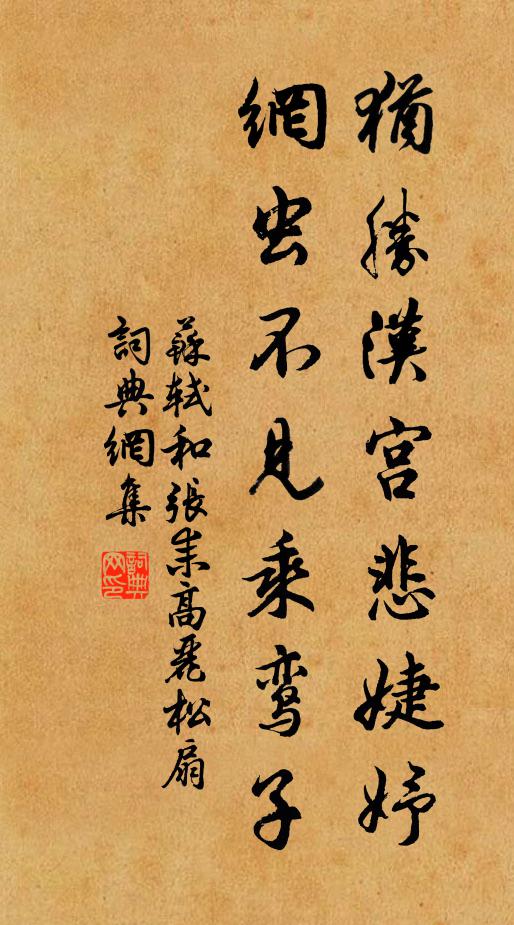 猶勝漢宮悲婕妤
網虫不見乘鸾子
蘇軾和張耒高麗松扇
詞典網集
詞典網印